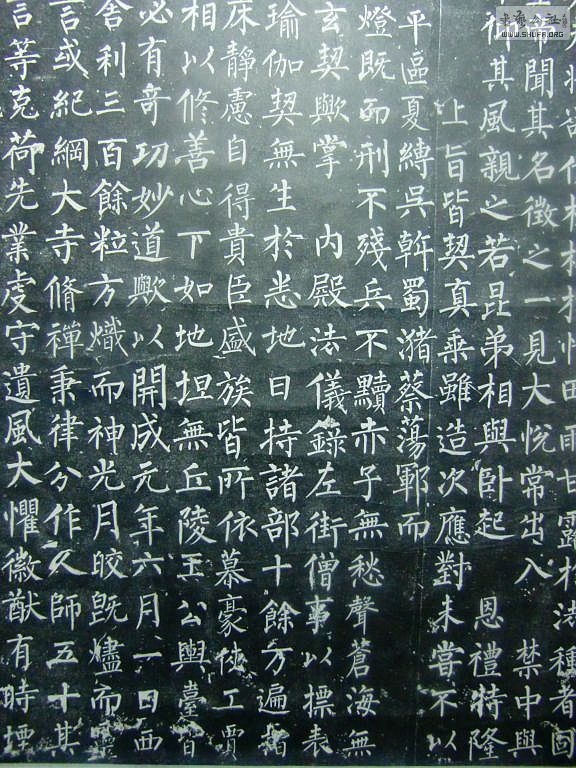 夫將欲伐株杌於情田雨甘露於法種者固
帝聞其名徵之一見大悅常出入 禁中與
其風親之若昆弟相與卧起 恩禮特隆
上旨皆契真乘雖造次應對未嘗不以
平區夏縛吳斡蜀瀦蔡蕩鄆而
燈既而刑不殘兵不黷赤子無愁聲蒼海無
玄契歟掌 內殿法儀錄左街僧事以標表
瑜伽契無生於悉地日持諸部十餘万遍指
床靜慮自得貴臣盛族皆所依慕豪俠工賈
相以修善心下如地坦無丘陵王公輿臺皆
必有奇功妙道歟以開成元年六月一日西
舍利三百餘粒方熾而神光月皎既燼而靈
言或紀綱大寺脩禪秉律分作人師五十其
言等克荷先業虔守遺風大懼徽猷有時堙
书艺公社
WWW.SHUFA.ORG